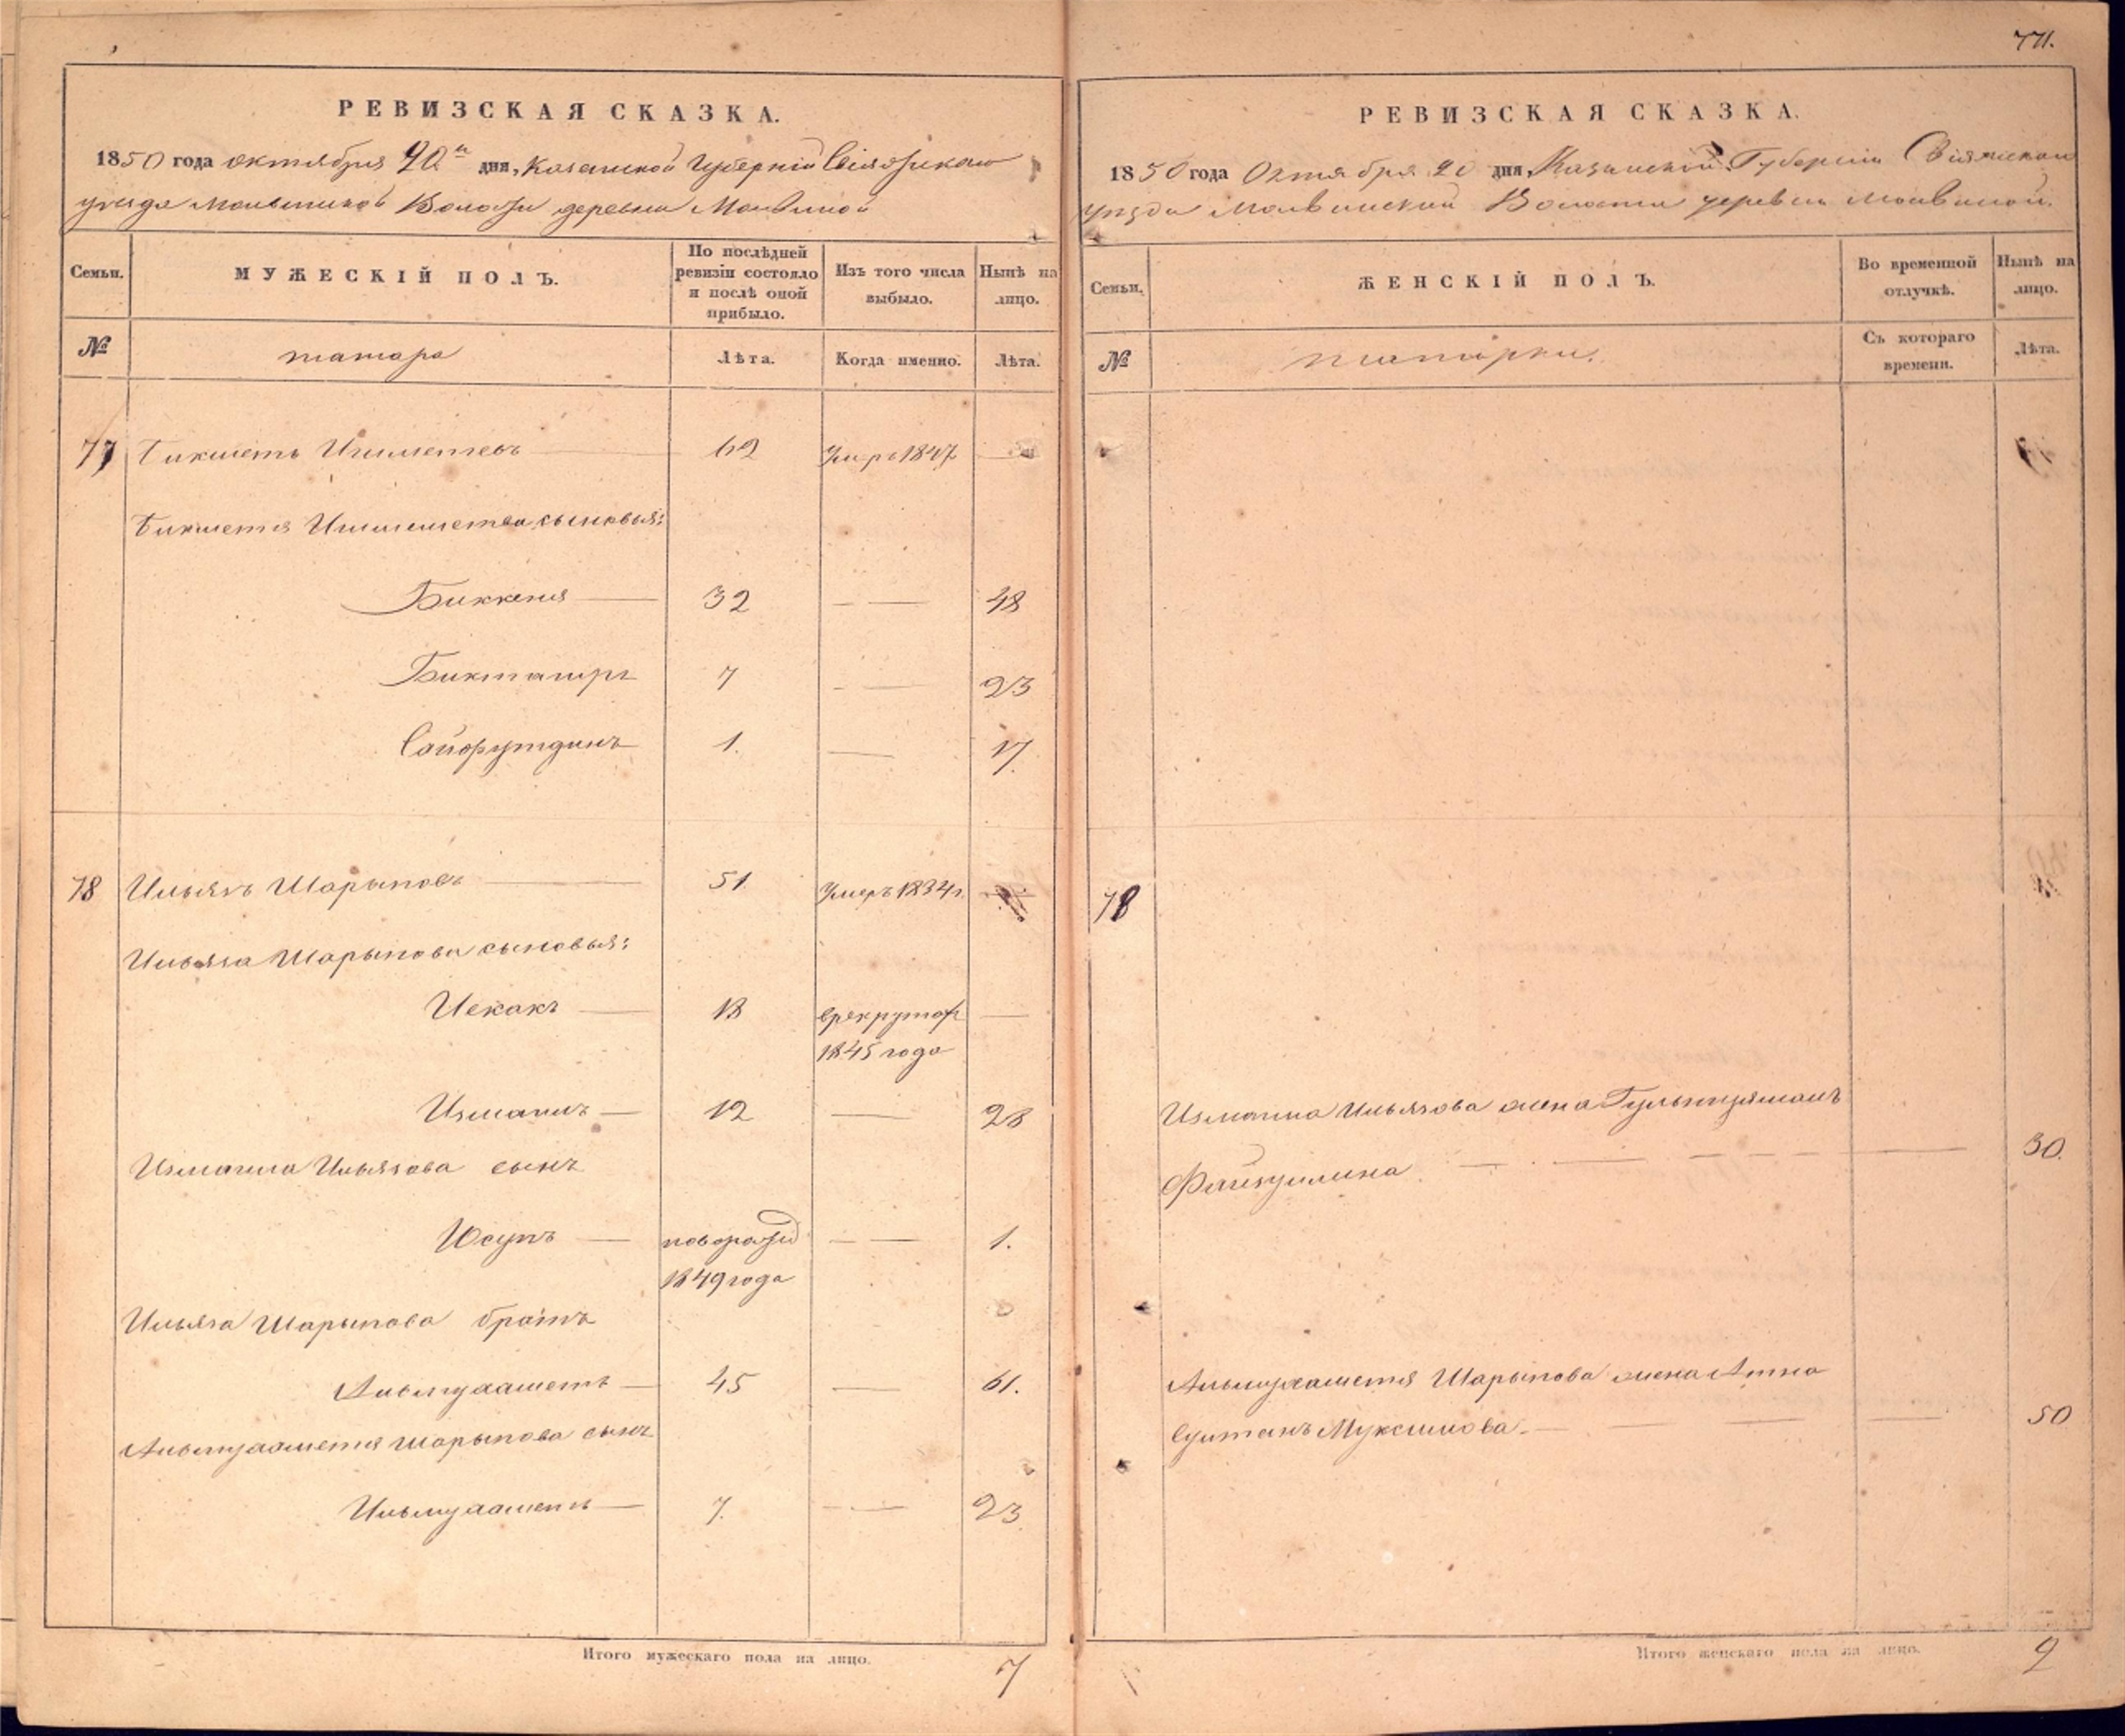 771.
РЕВИЗСКАЯ СКАЗКА.
1850 года октября 20го дня, Казанской Губерніи Свіяжскаго
уѣзда Молвинской Волости деревни Молвиной
Семьи. МУЖЕСКІЙ ПОЛЪ. По послѣдней ревизіи состояло и послѣ оной прибыло. Изъ того числа выбыло. Нынѣ на лицо.
№ татара Лѣта. Когда именно. Лѣта.
77 Бикметь Ишметевъ 62 Умръ 1847 —
Бикметя Ишметева сыновья:
Биккеня 32 — 48
Бикташръ 7 — 23
Сайфутдинъ 1. — 17.
78 Ильязъ Шарыповъ 51. Умеръ 1834 г. —
Ильяза Шарыпова сыновья:
Исхакъ 18 врекруты
1845 года —
Измаилъ 12 — 28
Измаила Ильязова сынъ
Юсупъ новорожд — 1.
1849 года
Ильяза Шарыпова братъ
Альмухаметь 45 — 61.
Альмухаметя Шарыпова сынъ
Ильмухаметь 7. — 23
Итого мужескаго пола на лицо. 7
РЕВИЗСКАЯ СКАЗКА.
1850 года Октября 20 дня, Казанской Губерніи Свіяжскаго
уѣзда Молвинской Волости деревни Молвиной.
Семьи. ЖЕНСКІЙ ПОЛЪ. Во временной отлучкѣ. Нынѣ на лицо.
№ татарки. Съ котораго времени. Лѣта.
78
Измаила Ильязова жена
Файзулина 30.
Альмухаметя Шарыпова жена
Султанъ Муксинова 50
Итого женскаго пола на лицо. 2